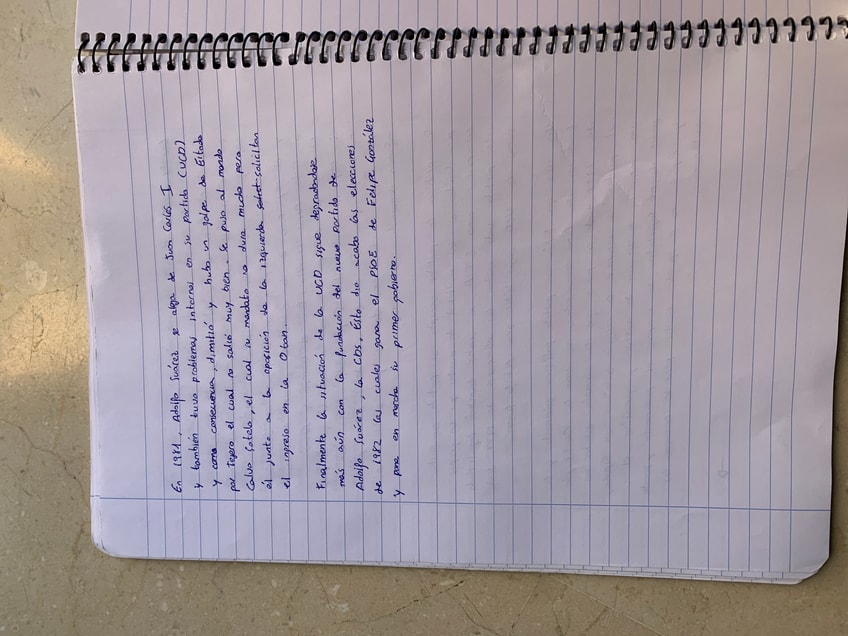 En 1981, Adolfo Suárez se aleja de Juan Carlos I
y también tuvo problemas internos en su partido (UCD)
y como consecuencia, dimitió y hubo un golpe de Estado
por Tejero el cual no salió muy bien. Se puso al mando
Calvo Sotelo, el cual su mandato no dura mucho pero
él junto a la oposición de la izquierda solicitan
el ingreso en la Otan.
Finalmente la situación de la UCD sigue degradandose
más aún con la fundación del nuevo partido de
Adolfo Suárez, la CDS. Esto dio acabo las elecciones
de 1982 las cuales gana el PSOE de Felipe González
y pone en marcha su primer gobierno.